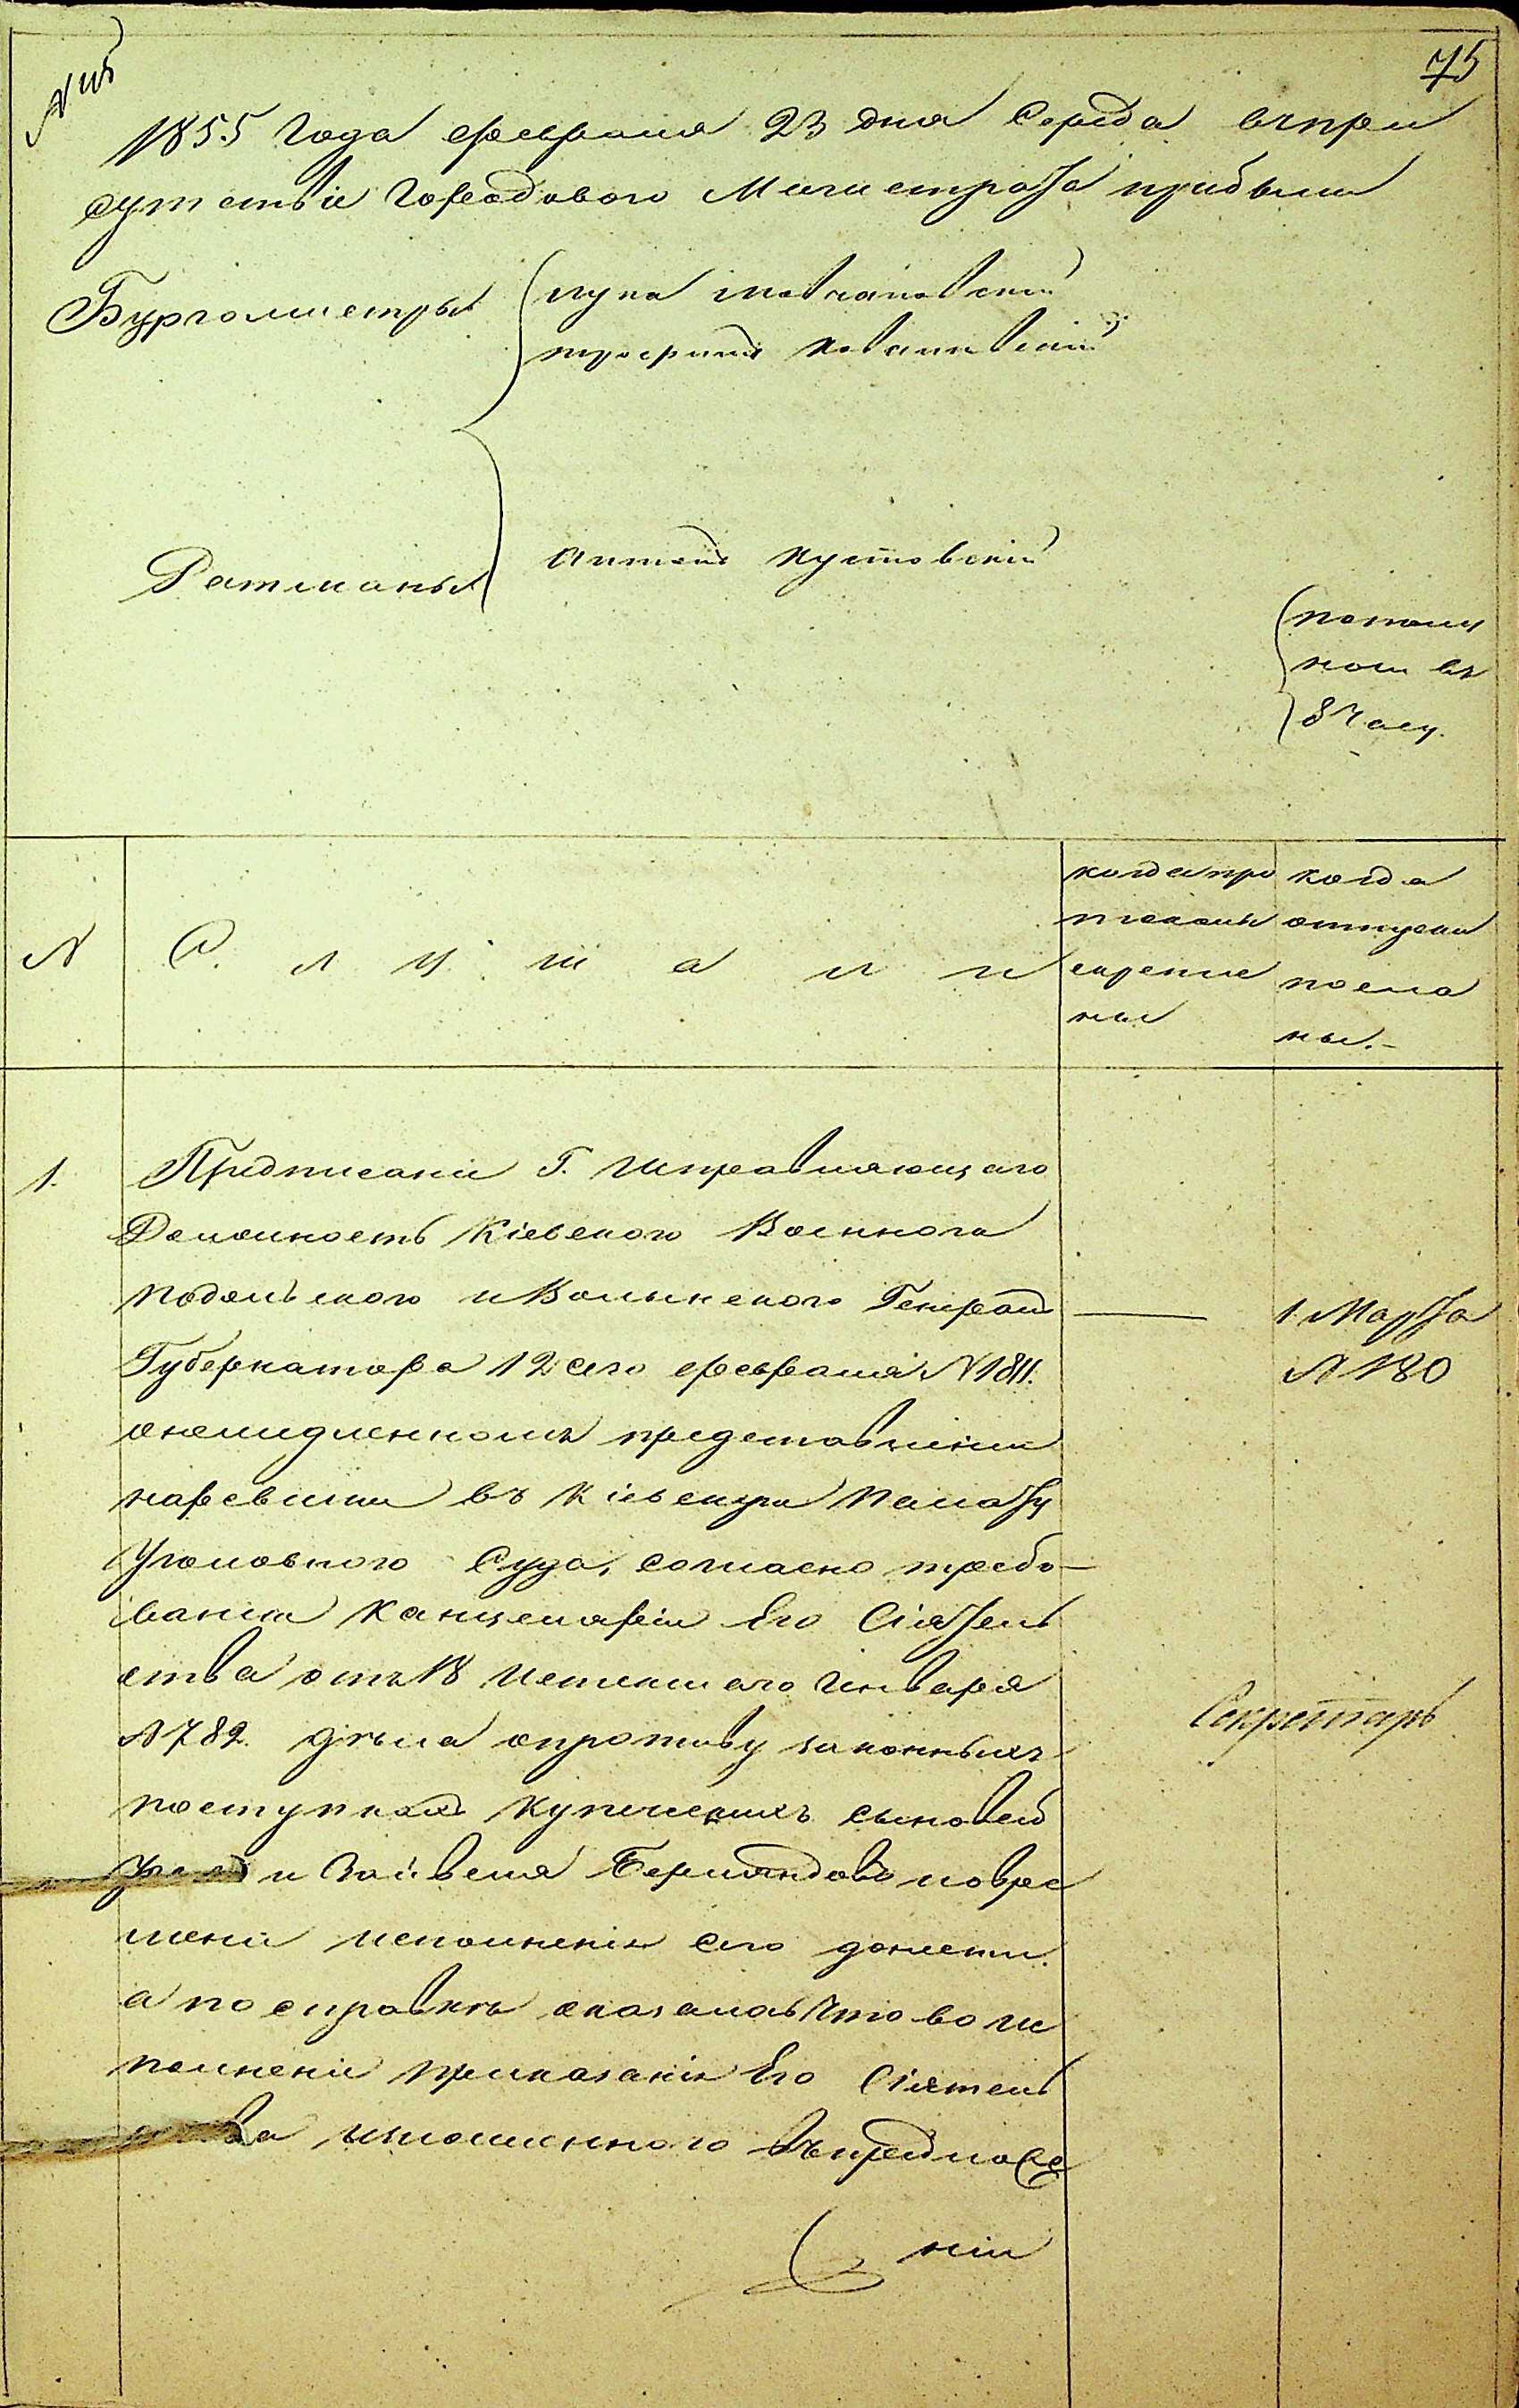 75
1855 Года февраля 23 дня Середа вчпри
сутствіе Городового Магистрата прибыли
Бургомистры
Лука
трофимъ
Ратманы
антонъ Кустовскій
пополу
ночи въ
8 часу.
N
С л у ш а л и
когда про
токолы
скрепле
ны
когда
отпуски
посла
ны.-
1.
Предписаніе Г. Исправляющаго
Должность Кіевскаго Военнаго
Подольскаго и Волынскаго Генералъ
Губернатора 12 сего февраля N 1811.
онемедленномъ представленіи
наревизію въ Кіевскую Палату
Уголовнаго Суда, согласно требо-
ванія Канцеляріи Его Сіятель
ства отъ 18 Истекшаго Января
N 782. дѣла опротиву законныхъ
поступкахъ Купеческихъ сыновей
и Берляндовъ иовре
мени исполненія сего донести.
а посправкѣ оказалось что во ис
полненіе приказанія Его Сіятель
ства изложеннаго въпредписа
ніи
1 Марта
N 180
Секретарь